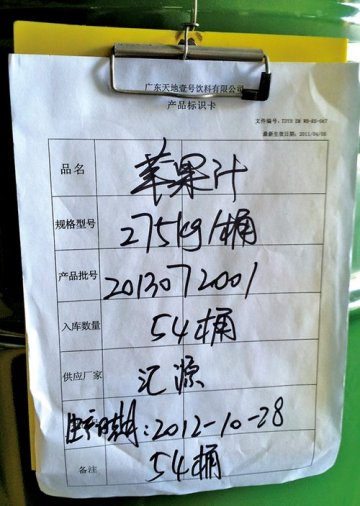 广东天地壹号饮料有限公司
产品标识卡
最新生效日期：2011/04/08
品名 苹果汁
规格型号 275kg/桶
产品批号 2013072001
入库数量 54桶
供应厂家 汇源
生产日期：2012-10-28
备注 54桶